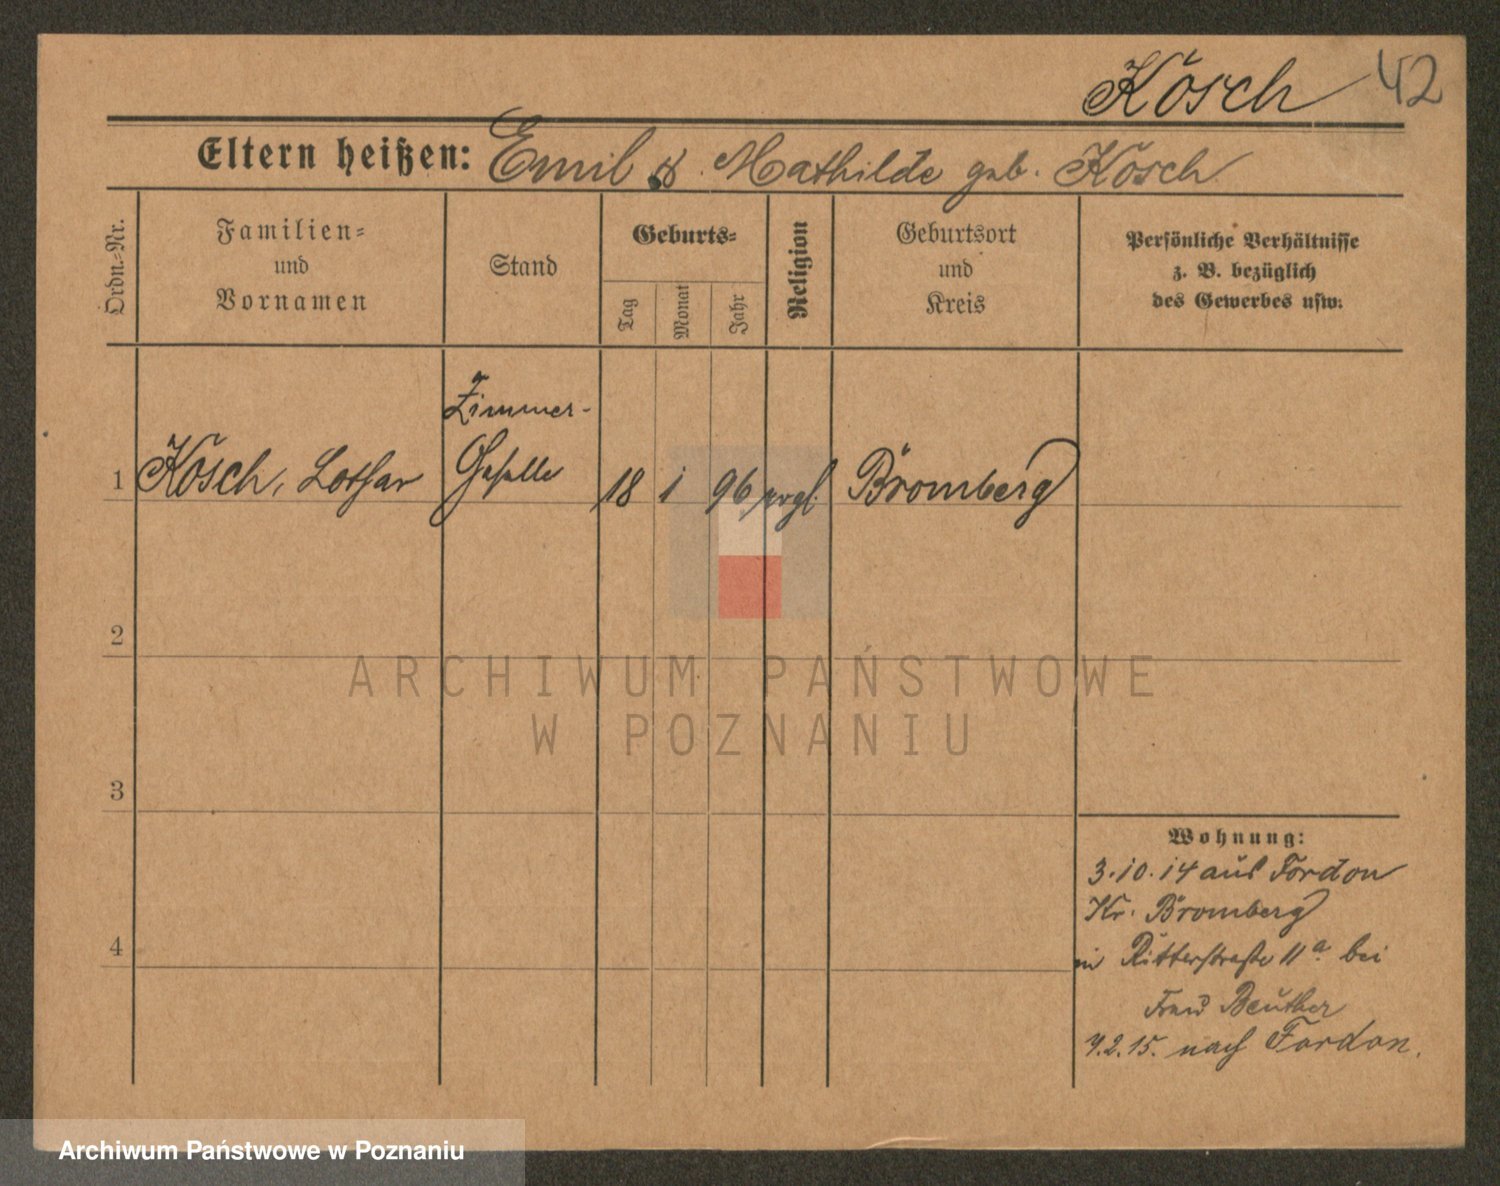 Kösch 42
Eltern heißen: Emil & Mathilde geb. Kösch
Ordn.-Nr.
Familien-
und
Vornamen
Stand
Geburts-
Tag
Monat
Jahr
Religion
Geburtsort
und
Kreis
Persönliche Verhältnisse
z. B. bezüglich
des Gewerbes usw.
Zimmer-
1 Kösch, Lothar Geselle 18 1 96 evgl. Bromberg
2
3
4
Wohnung:
3.10.14 aus Fordon
Kr. Bromberg
in Ritterstraße 11a bei
Frau Beuther
7.2.15. nach Fordon.
ARCHIWUM PAŃSTWOWE
W POZNANIU
Archiwum Państwowe w Poznaniu